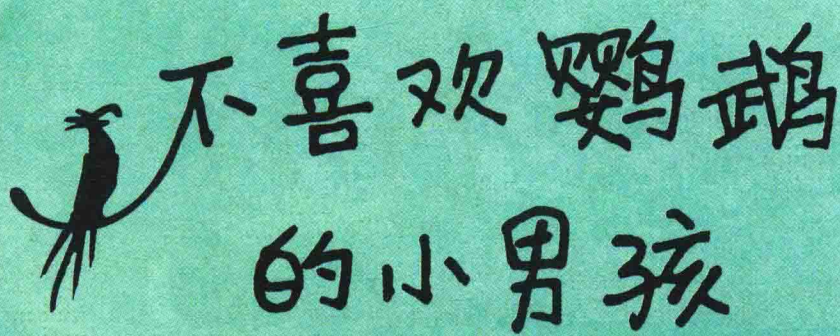 不喜欢鹦鹉
的小男孩